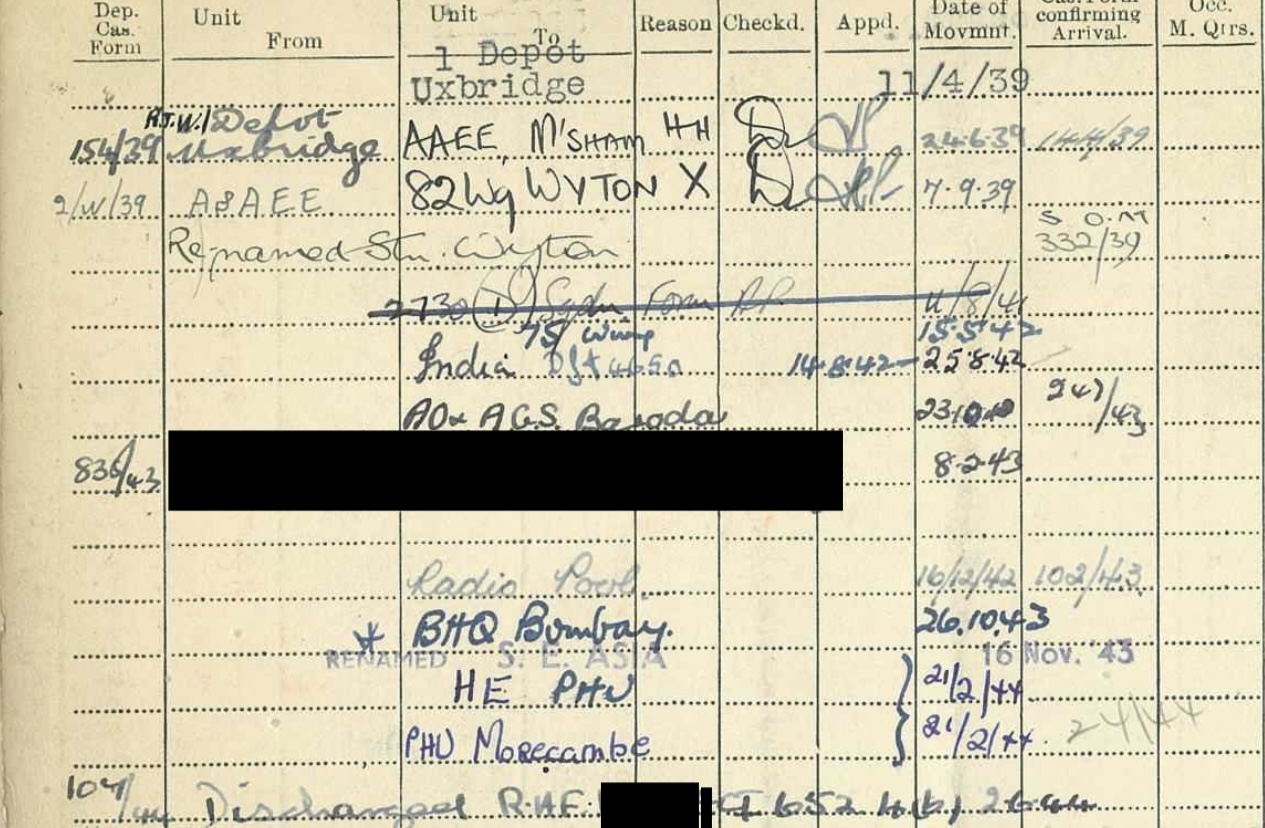 Dep. Cas. Form Unit From Unit To Reason Checkd. Appd. Date of Movmnt. Cas. Form confirming Arrival. Occ. M. Qtrs.
1 Depot
Uxbridge 11/4/39
154/39 Depot Uxbridge AAEE, M'SHAM HH 24.6.39 144/39
2/W/39 A&AEE 82 Wg WYTON X 7.9.39
Re-named Stn. Wyton 332/39
2730 (T) Sqdn Form 11/8/41
75 Wing 15.5.42
India Dft 4650 14.8.42 25.8.42
A.G.S. Baroda 247/43
836/43 8.2.43
Radio Pool 16/12/42 102/43
BHQ Bombay. 26.10.43
RENAMED S. E. ASIA 16 Nov. '43
HE PHU 21/2/44
PHU Morecambe 21/2/44 24/44
104/44 Discharged R.A.F. 652